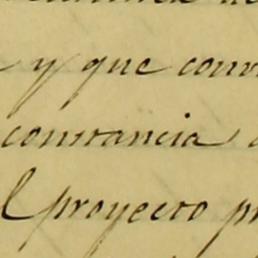 y que conv
constancia
l proyecto pr